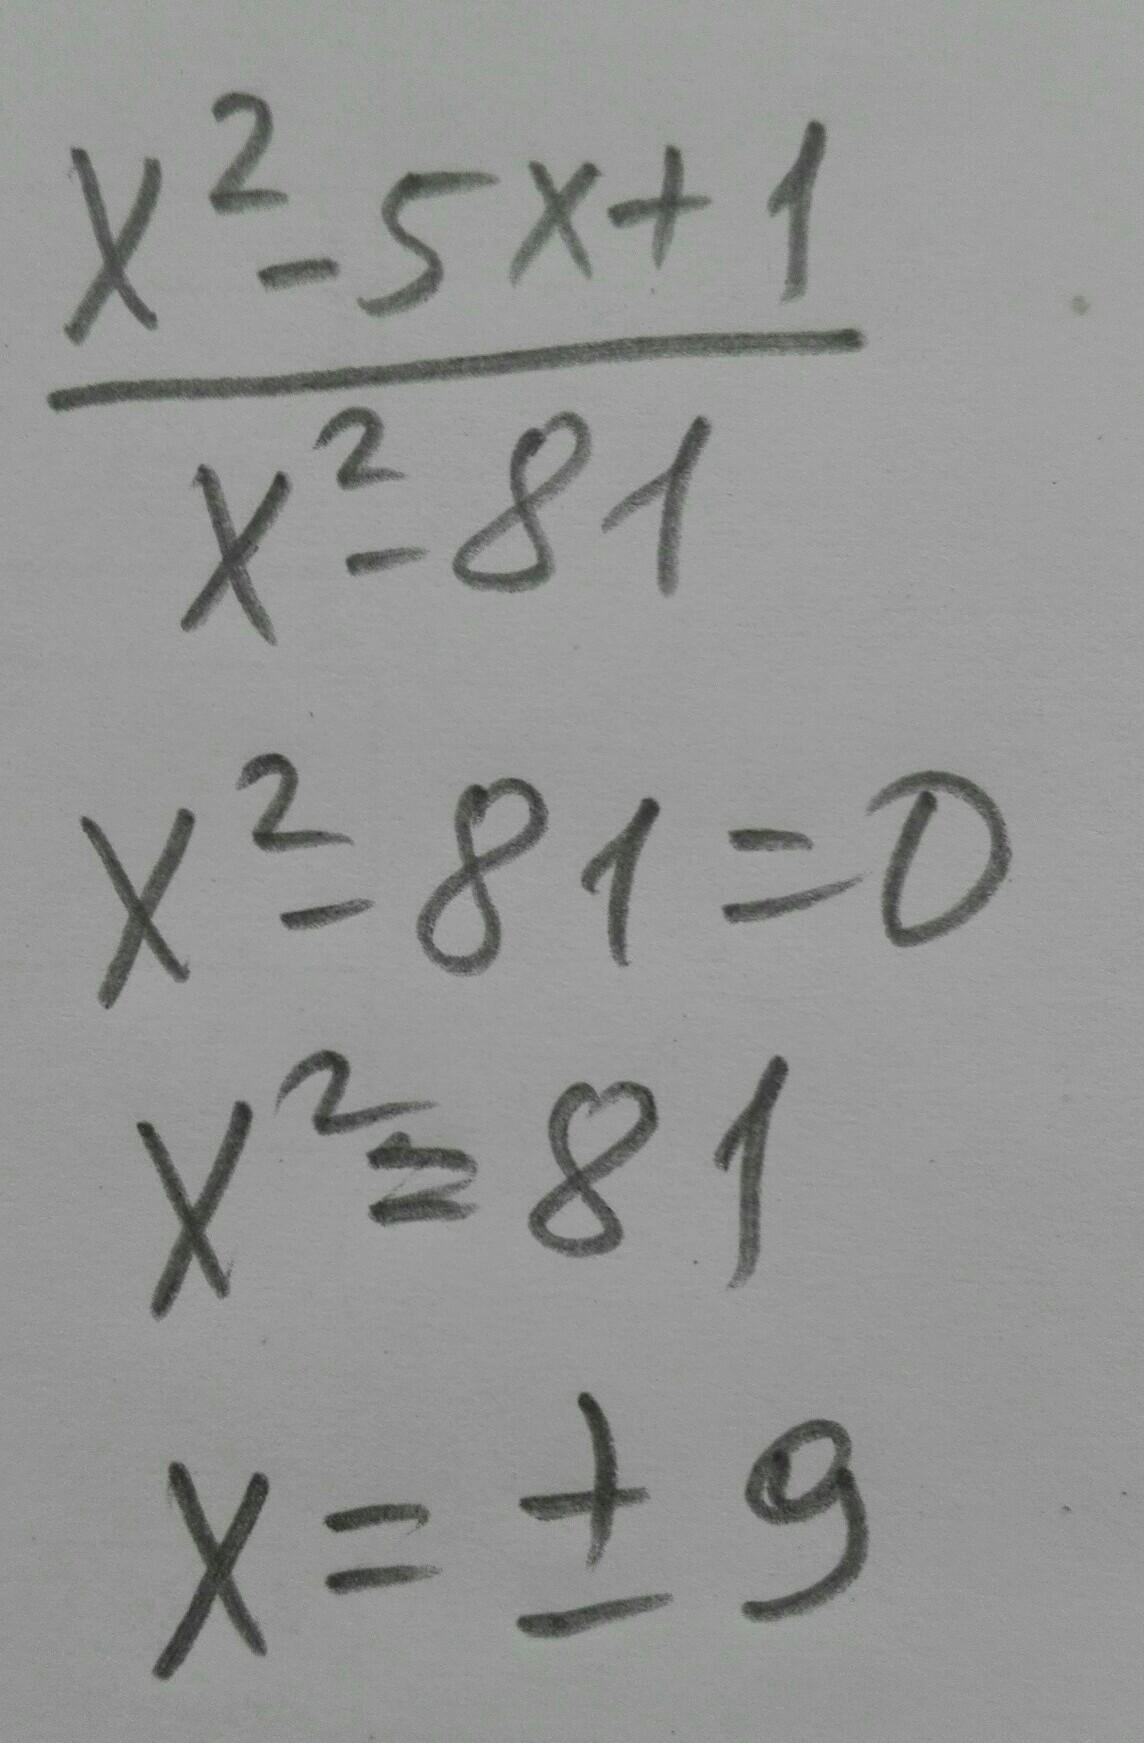 x²-5x+1
x²-81
x²-81=0
x²=81
x=±9